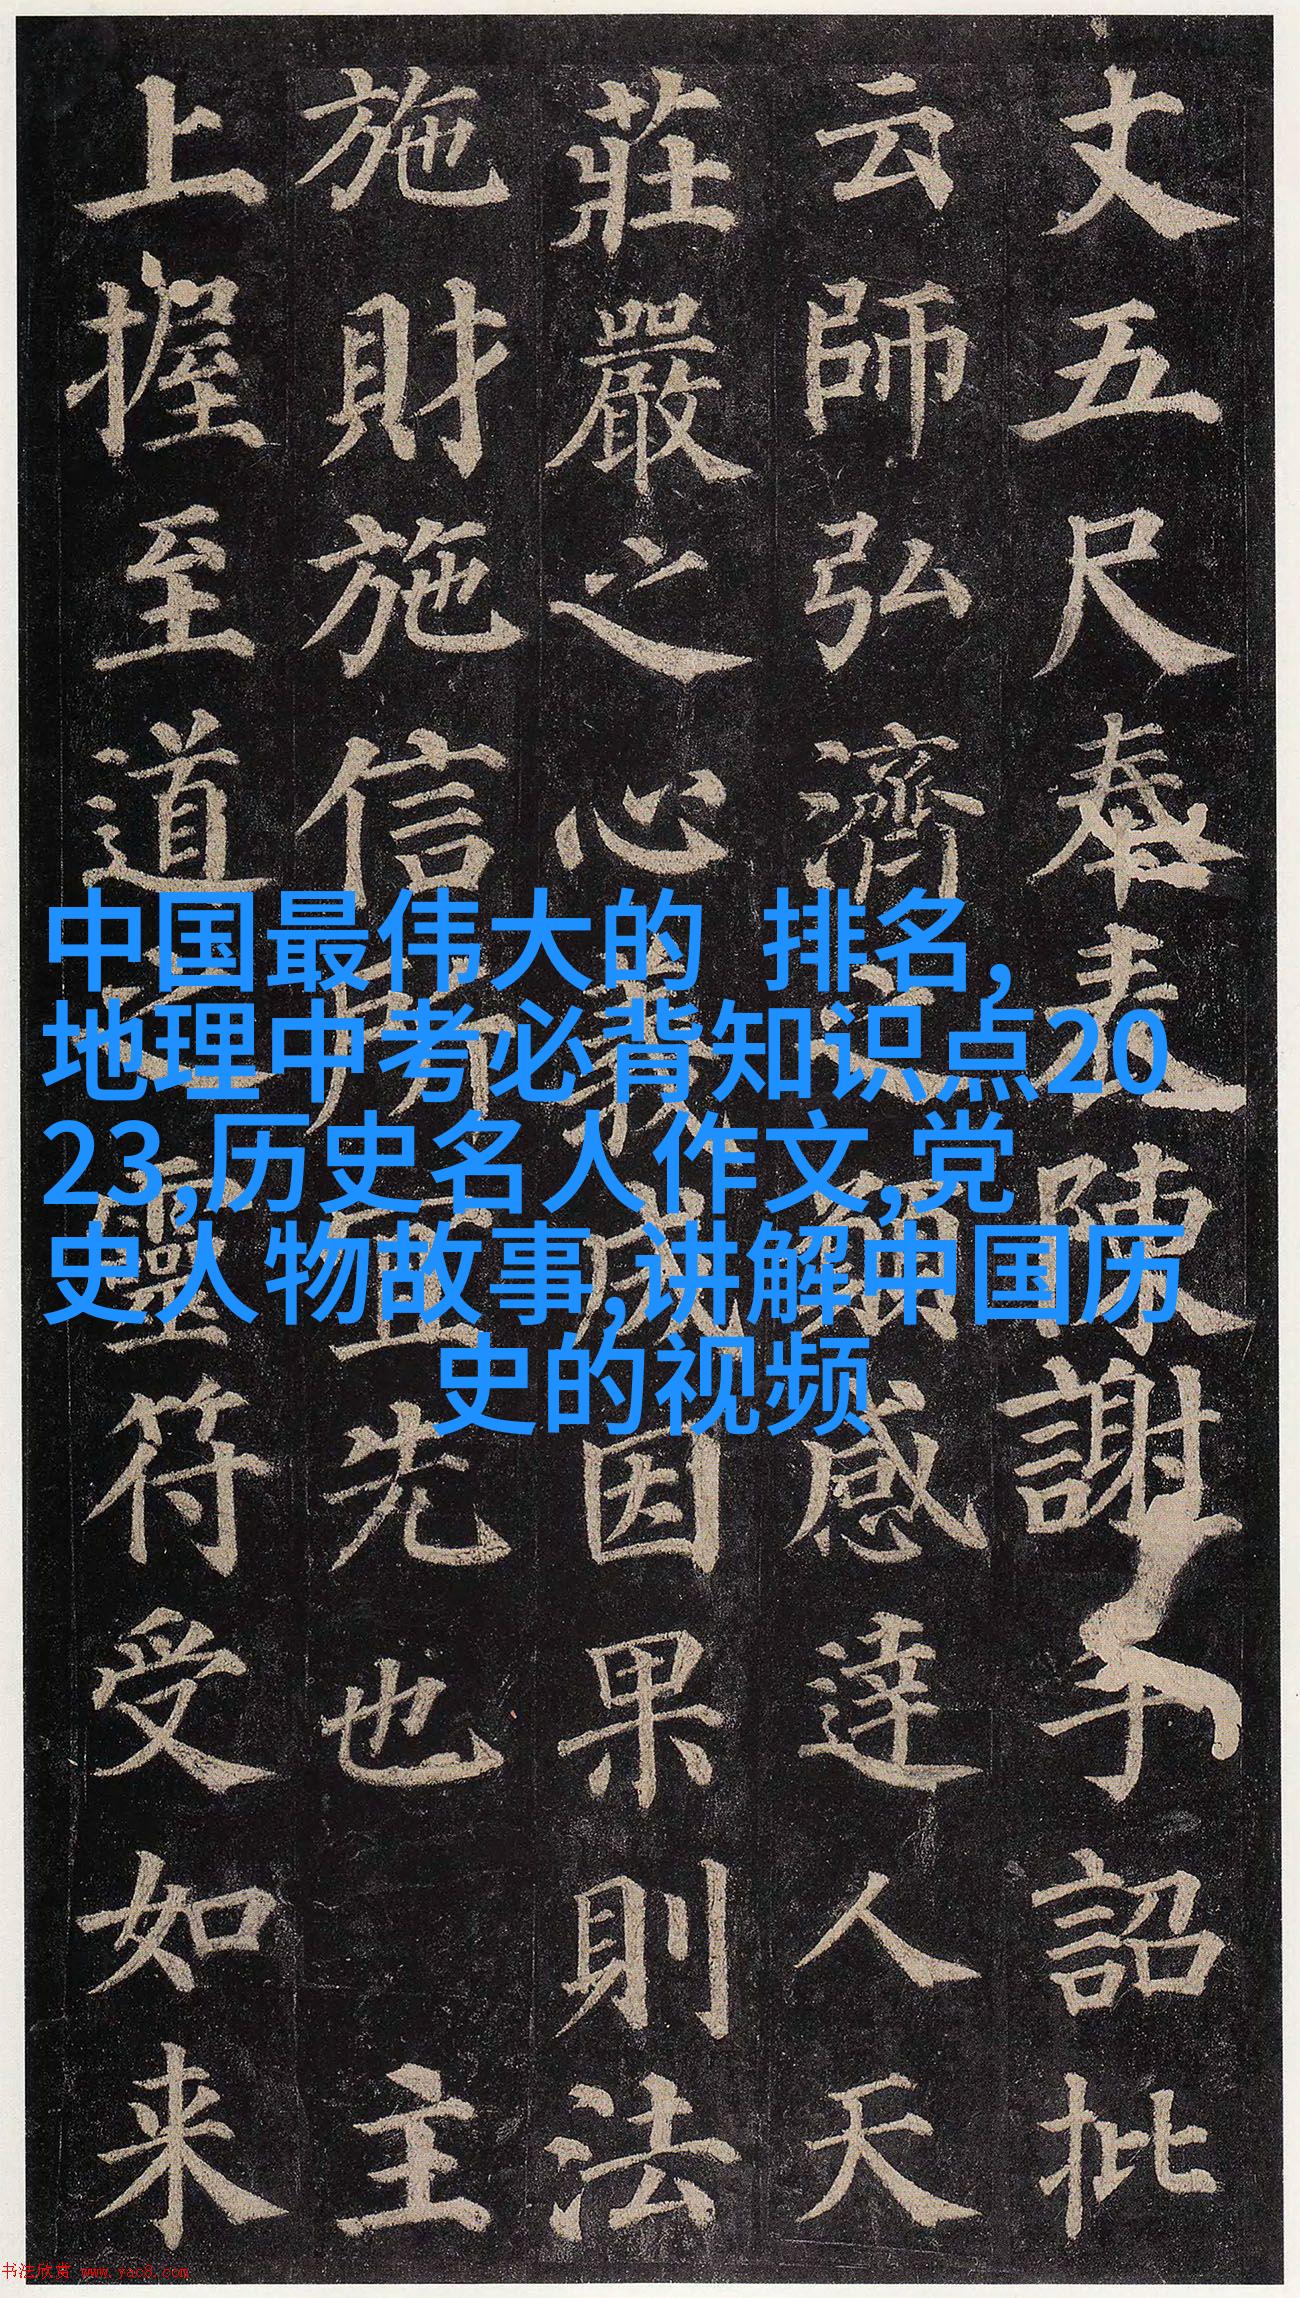 丈五尺奉表陳謝手詔批
云師弘濟之願感達人天
莊嚴之心義成因果則法
施財施信所宜先也 主
上握至道之靈符受如来
中国最伟大的 排名,
地理中考必背知识点20
23,历史名人作文,党
史人物故事,讲解中国历
史的视频
书法欣赏 www.yac8.com